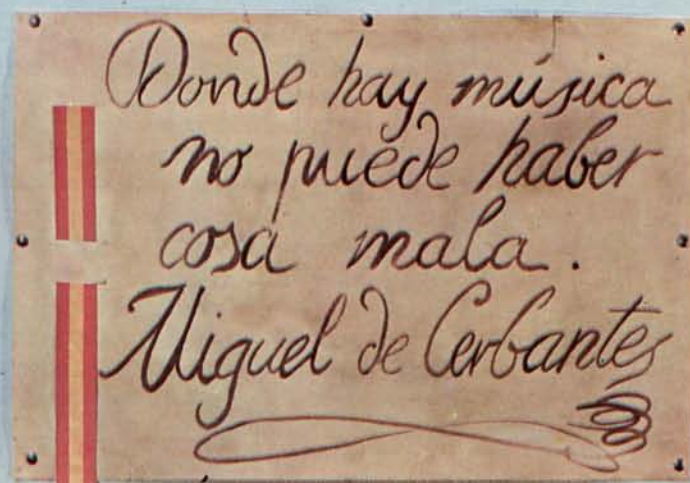 Donde hay música
no puede haber
cosa mala.
Miguel de Cerbantes